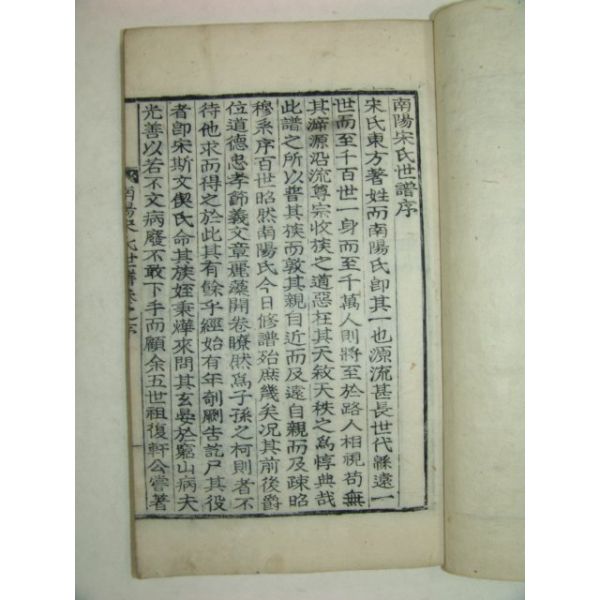 南陽宋氏世譜序
宋氏東方著姓而南陽氏卽其一也源流甚長世代緜遠一
世而至千百世一身而至千萬人則將至於路人相視苟無
其溯源沿流尊宗收族之道惡在其天敘天秩之爲惇典哉
此譜之所以普其族而敦其親自近而及遠自親而及疎昭
穆系序百世昭然南陽氏今日修譜殆庶幾矣况其前後爵
位道德忠孝節義文章麗藻開卷瞭然爲子孫之柯則者不
待他求而得之於此其有餘乎經始有年剞劂告訖尸其役
者卽宋斯文偰氏命其族姪秉燁來問其玄晏於竆山病夫
光善以若不文病廢不敢下手而顧余五世祖復軒公嘗著
南陽宋氏世譜卷之序